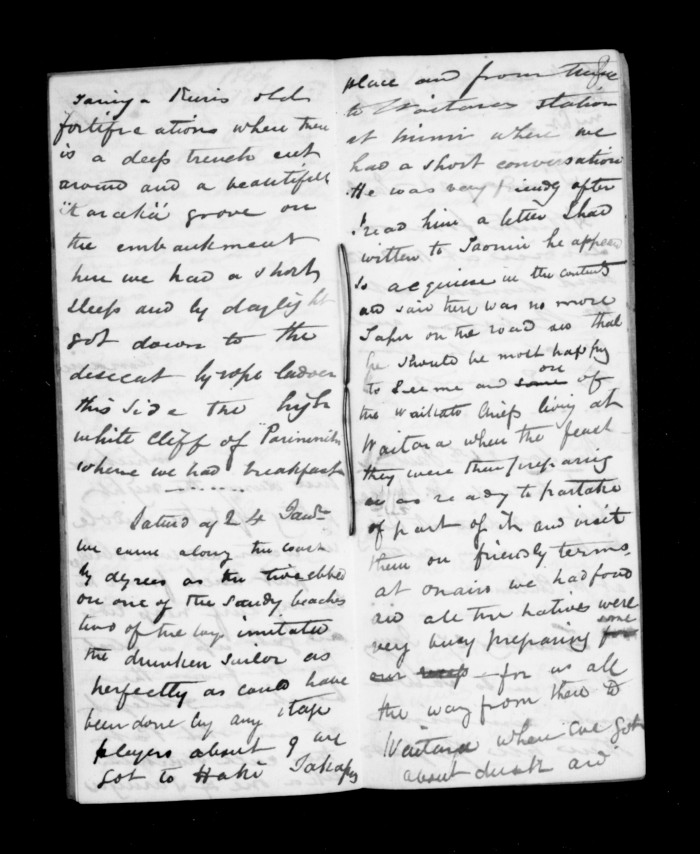 Taringa Kuris old
fortifications where there
is a deep trench cut
around and a beautifull
"Karaka" grove on
the embankment
here we had a short
sleep and by daylight
got down to the
descent by rope ladder
this side the high
white cliff of "Parininihi
where we had breakfast
Saturday 24 Jany
we came along the coast
by degrees as the tide ebbed
on one of the sandy beaches
two of the boys imitated
the drunken sailor as
perfectly as could have
been done by any stage
players about 9 we
got to Haki
place and from there
to Waitaras station
at mimi where we
had a short conversation
He was very friendy after
I read him a letter I had
written to he appeared
to acquiese in the contents
and said there was no more
Tapu on the road and that
he should be most happy
to see me and some on of
the Waikato Chiefs living at
Waitara when the feast
they were then preparing
was ready to partake
of part of it and visit
them on friendly terms.
at onairo we had food
and all the natives were
very busy preparing some
our for us all
the way from there to
Waitara where we got
about dusk and